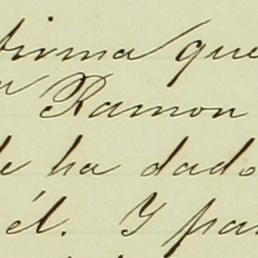 firma que
Ramon
le ha dado
él. Y par